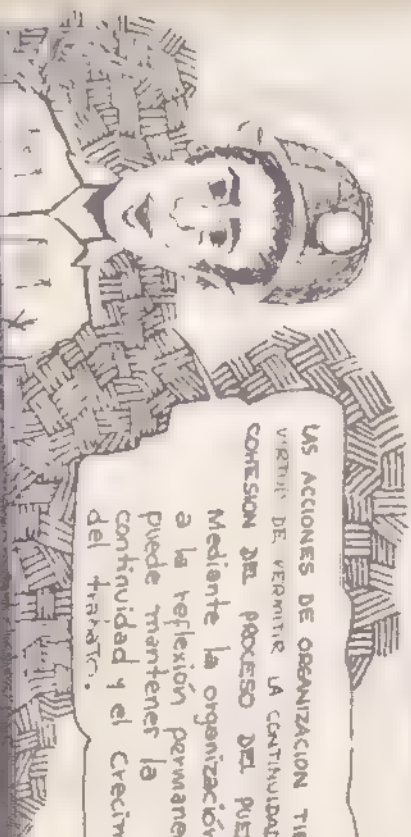 LAS ACCIONES DE ORGANIZACION
VIRTUD DE PERMITIR LA CONTINUIDAD
COHESION DEL PROCESO DEL
Mediante la organización
a la reflexión
puede mantener la
continuidad y el
del trabajo.